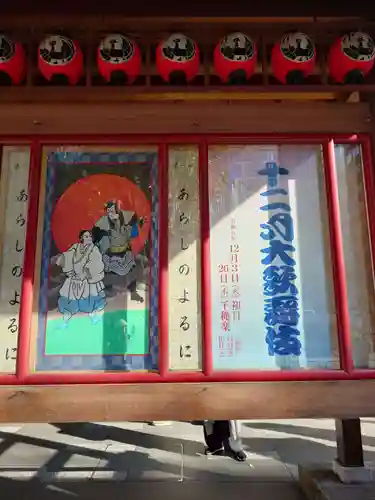 十二月大歌舞伎
12月3日(火)初日
26日(木)千穐楽
あらしのよるに
あらしのよるに